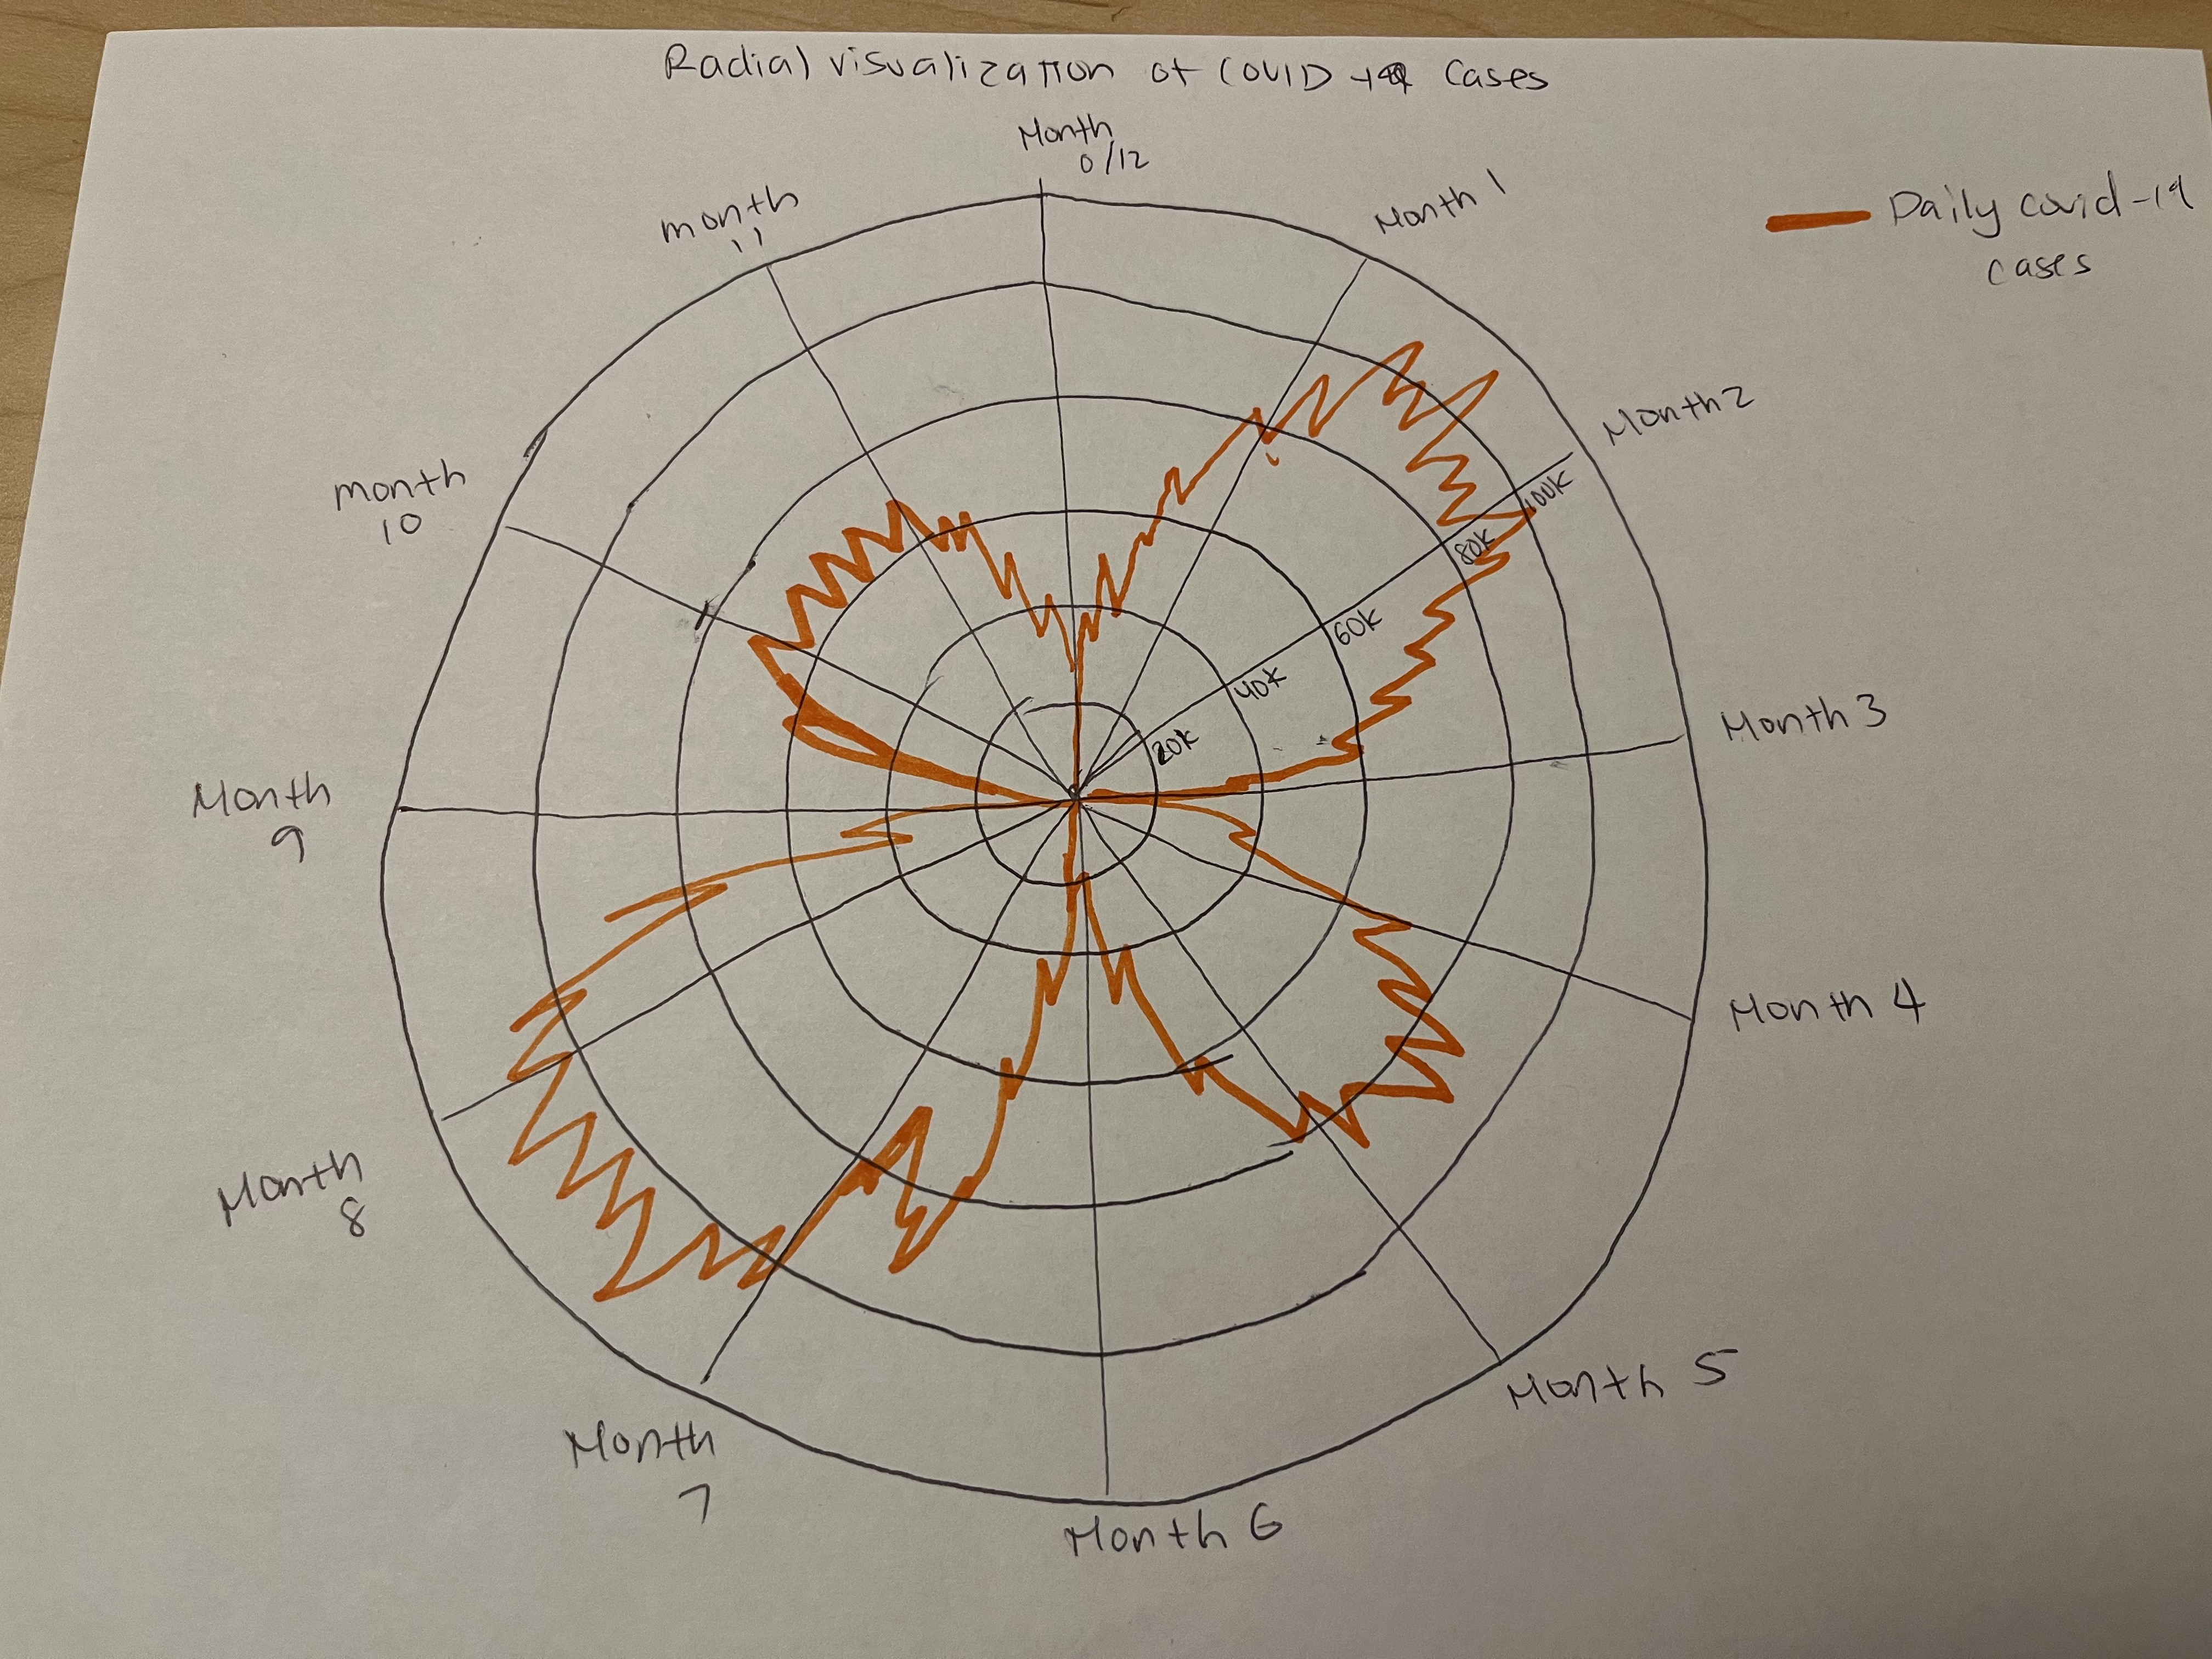 Radial visualization of COVID-19 cases
Daily covid-19
cases
Month
0/12
Month 1
Month 2
Month 3
Month 4
Month 5
Month 6
Month
7
Month
8
Month
9
Month
10
month
11
20K
40K
60K
80K
100K